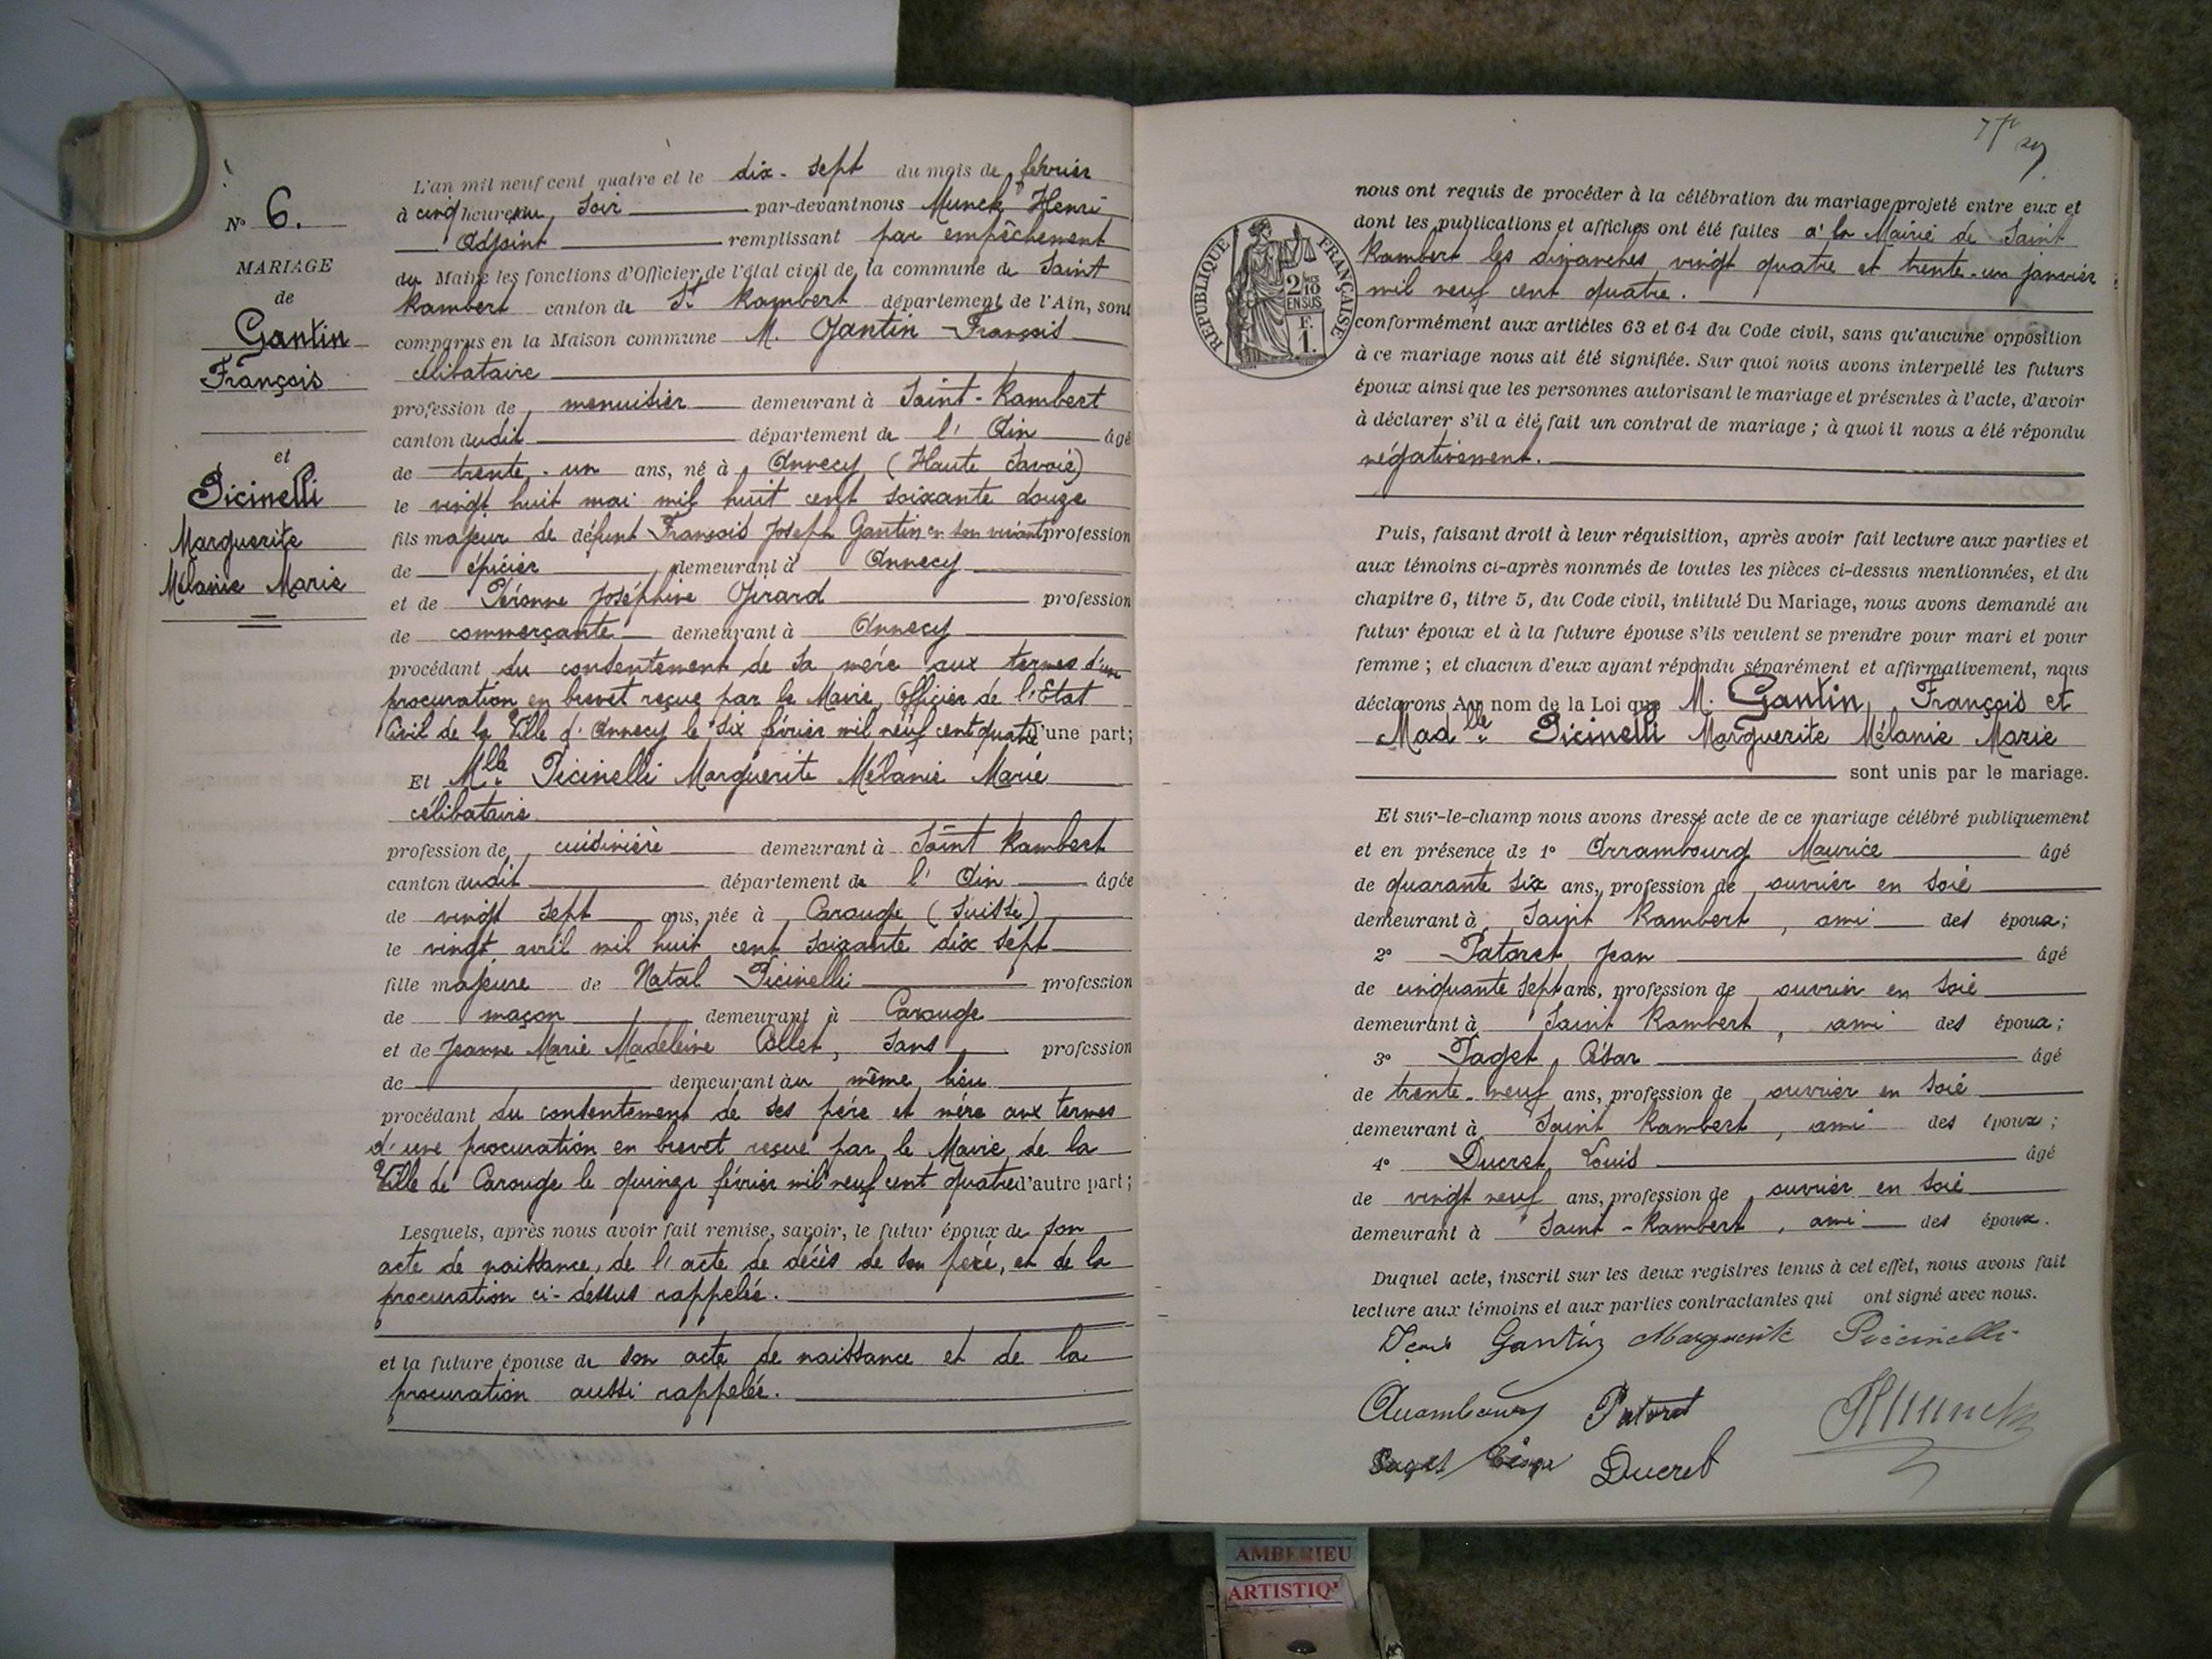 N° 6.
MARIAGE
de
Gantin
François
et
Picinelli
Marguerite
Mélanie Marie
L'an mil neuf cent quatre et le dix-sept du mois de février
à cinq heures du soir par-devant nous Munck Henri
Adjoint remplissant par empêchement
du Maire les fonctions d'Officier de l'état civil de la commune de Saint
Rambert canton de St Rambert département de l'Ain, sont
comparus en la Maison commune M. Gantin François
célibataire
profession de menuisier demeurant à Saint-Rambert
canton dudit département de l'Ain âgé
de trente-un ans, né à Annecy (Haute Savoie)
le vingt huit mai mil huit cent soixante douze
fils majeur de défunt François Joseph Gantin en son vivant profession
de épicier demeurant à Annecy
et de Péronne Joséphine Girard profession
de commerçante demeurant à Annecy
procédant du consentement de sa mère aux termes d'une
procuration en brevet reçue par le Maire, Officier de l'Etat
Civil de la Ville d'Annecy le six février mil neuf cent quatre d'une part;
Et Mlle Picinelli Marguerite Mélanie Marie
célibataire
profession de cuisinière demeurant à Saint Rambert
canton dudit département de l'Ain âgée
de vingt sept ans, née à Carouge (Suisse)
le vingt avril mil huit cent soixante dix sept
fille majeure de Natal Picinelli profession
de maçon demeurant à Carouge
et de Jeanne Marie Madeleine Collet, sans profession
de demeurant au même lieu
procédant du consentement de ses père et mère aux termes
d'une procuration en brevet reçue par le Maire de la
Ville de Carouge le quinze février mil neuf cent quatre d'autre part;
Lesquels, après nous avoir fait remise, savoir, le futur époux de son
acte de naissance, de l'acte de décès de son père, et de la
procuration ci-dessus rappelée.
et la future épouse de son acte de naissance et de la
procuration aussi rappelée.
nous ont requis de procéder à la célébration du mariage projeté entre eux et
dont les publications et affiches ont été faites à la Mairie de Saint
Rambert les dimanches vingt quatre et trente-un janvier
mil neuf cent quatre.
RÉPUBLIQUE FRANÇAISE
2/10
EN SUS
F.
1.
conformément aux articles 63 et 64 du Code civil, sans qu'aucune opposition
à ce mariage nous ait été signifiée. Sur quoi nous avons interpellé les futurs
époux ainsi que les personnes autorisant le mariage et présentes à l'acte, d'avoir
à déclarer s'il a été fait un contrat de mariage ; à quoi il nous a été répondu
négativement.
Puis, faisant droit à leur réquisition, après avoir fait lecture aux parties et
aux témoins ci-après nommés de toutes les pièces ci-dessus mentionnées, et du
chapitre 6, titre 5, du Code civil, intitulé Du Mariage, nous avons demandé au
futur époux et à la future épouse s'ils veulent se prendre pour mari et pour
femme ; et chacun d'eux ayant répondu séparément et affirmativement, nous
déclarons Au nom de la Loi que M. Gantin François et
Madlle Picinelli Marguerite Mélanie Marie
sont unis par le mariage.
Et sur-le-champ nous avons dressé acte de ce mariage célébré publiquement
et en présence de 1° Arrambourg Maurice âgé
de quarante six ans, profession de ouvrier en soie
demeurant à Saint Rambert, ami des époux;
2° Patoret Jean âgé
de cinquante sept ans, profession de ouvrier en soie
demeurant à Saint Rambert, ami des époux;
3° Paget César âgé
de trente-neuf ans, profession de ouvrier en soie
demeurant à Saint Rambert, ami des époux;
4° Ducret Louis âgé
de vingt neuf ans, profession de ouvrier en soie
demeurant à Saint-Rambert, ami des époux.
Duquel acte, inscrit sur les deux registres tenus à cet effet, nous avons fait
lecture aux témoins et aux parties contractantes qui ont signé avec nous.
Gantin Marguerite Piccinelli
Arrambourg Patoret HMunck
Paget César Ducret
AMBERIEU
ARTISTIQ'